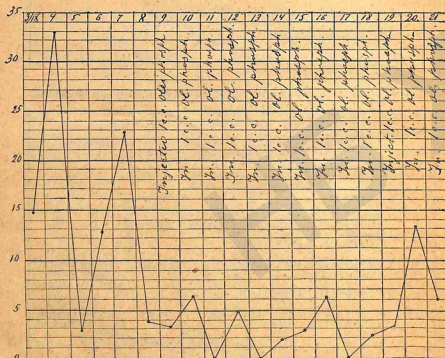 35 3/18 4 5 6 7 8 9 10 11 12 13 14 15 16 17 18 19 20. 21
30
25
20
15
10
5
0
Injected 1c.c. Olei phosph
In. 1 c.c. Ol. phosph.
In. 1 c.c. Ol. phosph.
In. 1 c.c. Ol. phosph.
In. 1 c.c. Ol. phosph.
In. 1 c.c. Ol. phosph.
In. 1 c.c. Ol. phosph.
In. 1 c.c. Ol. phosph.
In. 1 c.c. Ol. phosph.
In. 1 c.c. Ol. phosph.
Inject 1 c.c. Ol. phosph.
In. 1 c.c. Ol. phosph.
In. 1 c.c. Ol. phosph.